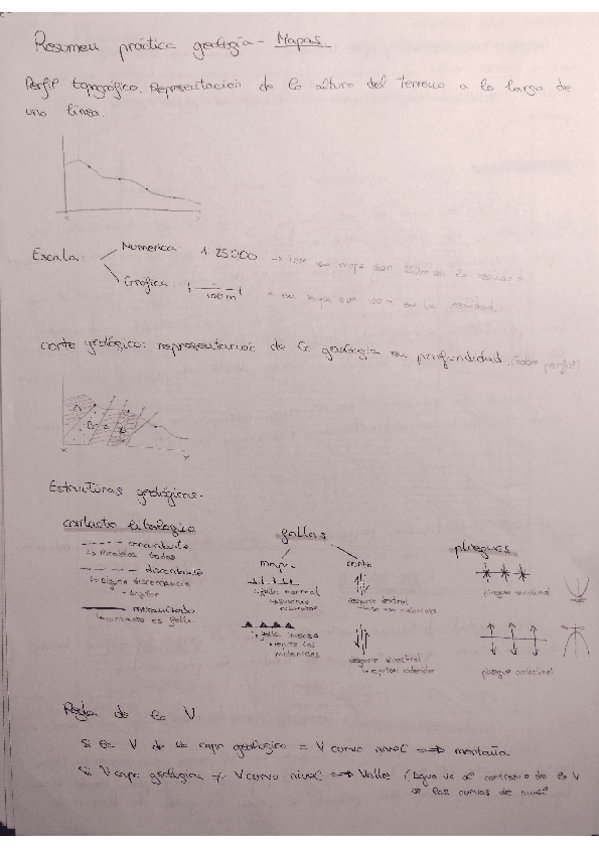 Resumen práctica geología - Mapas
Perfil topográfico. Representación de la altura del terreno a lo largo de
una línea.
x y
Escala: Numérica: 1 25000 → 1cm en mapa son
Gráfica: 100 m x en mapa son 100 m en la realidad.
corte geológico: representación de la geología en profundidad. (sobre perfil)
x y
Estructuras geológicas.
contacto litológico fallas pliegues
concordante
↳ Paralelos todos
discordante
↳ alguna discordancia
- angular
mecanizado
↳ contacto es falla.
mapa corte
↳ falla normal
↳ falla inversa
↳ repite los materiales
desgarre dextral
desgarre sinestral
pliegue sinclinal
pliegue anticlinal
Regla de la V.
Si la V de la capa geológica = V curva nivel ⟹ montaña
Si V capa geológica ≠ V curva nivel ⟹ Valle (Agua va al contrario de la V
de las curvas de nivel